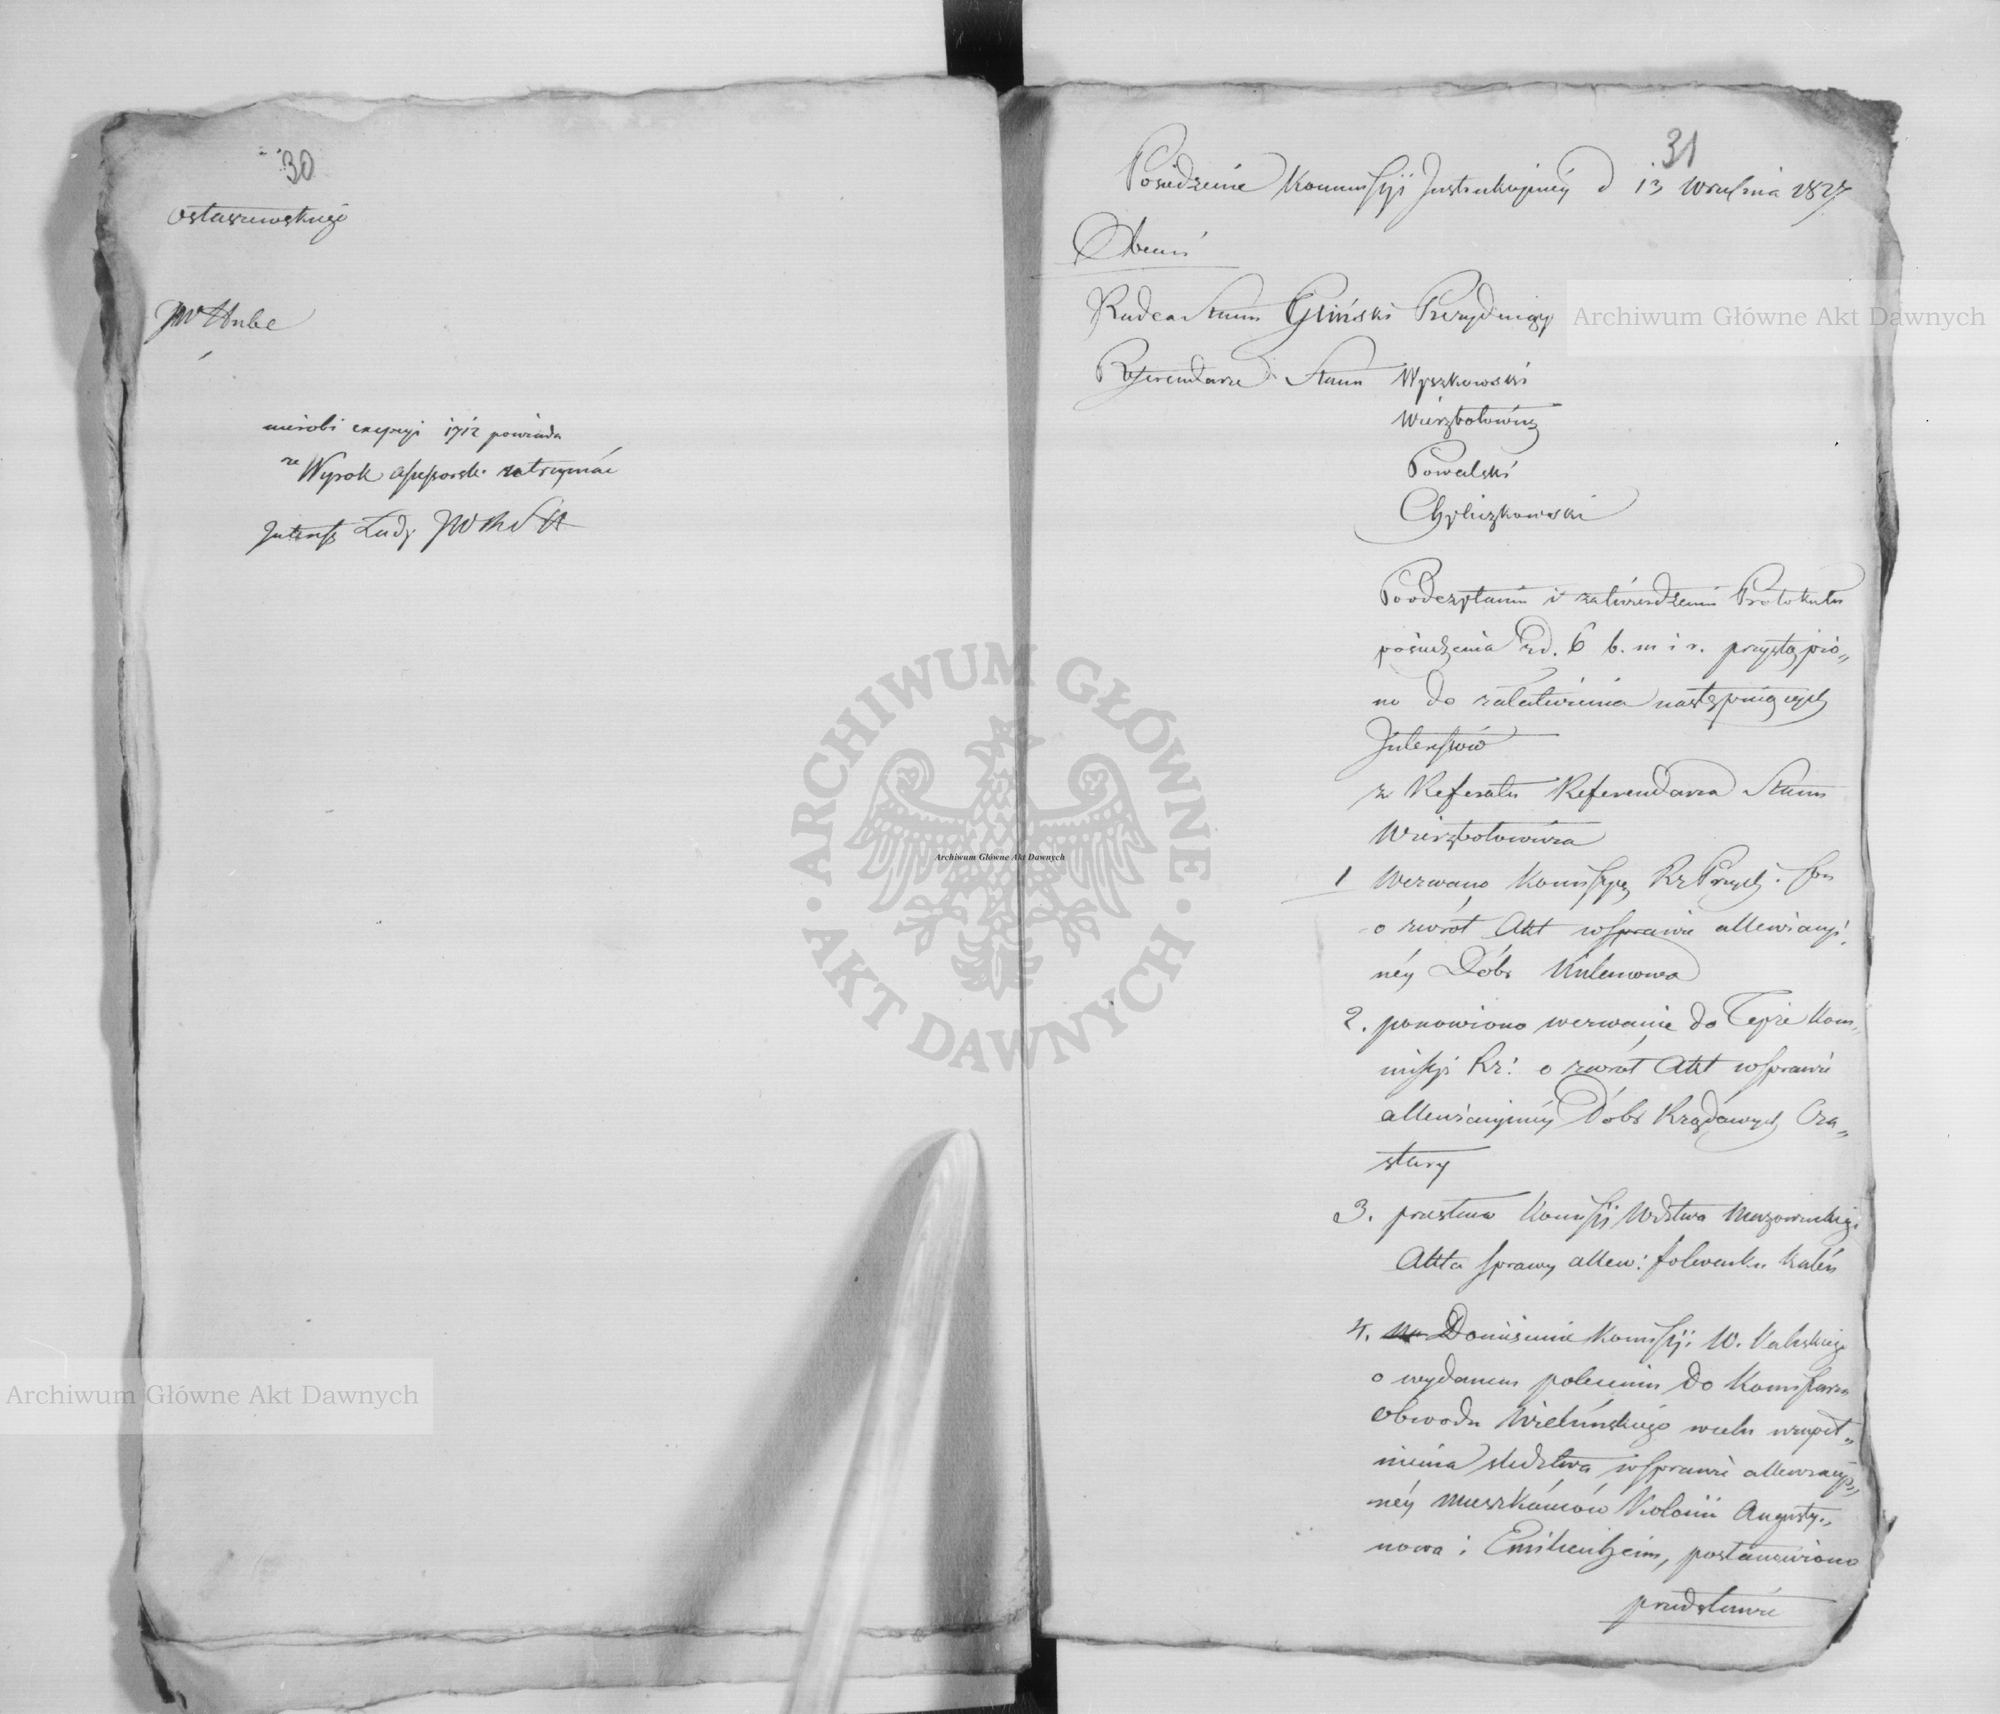 30
Ostaszewskiego
JW Hube
nierobi excepcyi 1712 powiada
ze Wyrok assessorsk. zatrzymać
Interess Ludz. JW
31
Posiedzenie Kommissyi Instrukcyiney d 13 Września 1827
Obecni
Radca Stanu Gliński Prezyduiący
Referendarze Stanu Wyszkowski
Wierzbołowicz
Powalski
Chyliczkowski
Po odczytaniu i zatwierdzeniu Protokułu
posiedzenia z d. 6 b. m i r. przystąpio„
no do załatwienia następuiących
Interessów
z Referatu Referendarza Stanu
Wierzbołowicza
1 Wezwano Komissyą Rz Przych: i Sk
o zwrót Akt w sprawie allewiacyi„
néy Dóbr Kulenowa
2. ponowiono wezwanie do Teyże Kom„
missyi Rz: o zwrót Akt w sprawie
allewiacyinéy Dóbr Rządowych Cza„
stary
3. przesłano Komissyi Wdztwa Mazowieckiego
Akta sprawy allew: folwarku Kaleń
4. na Doniesienie Komissyi W. Kaliskiego
o wydanem poleceniu do Komissarza
Obwodu Wieluńskiego wcelu uzupeł„
nienia sledztwa w sprawie allewiacyi„
néy Mieszkańców Kolonii Augusty„
nowa i Emilienheim, postanowiono
przedstawić
Archiwum Główne Akt Dawnych
Archiwum Główne Akt Dawnych
ARCHIWUM GŁÓWNE AKT DAWNYCH
Archiwum Główne Akt Dawnych